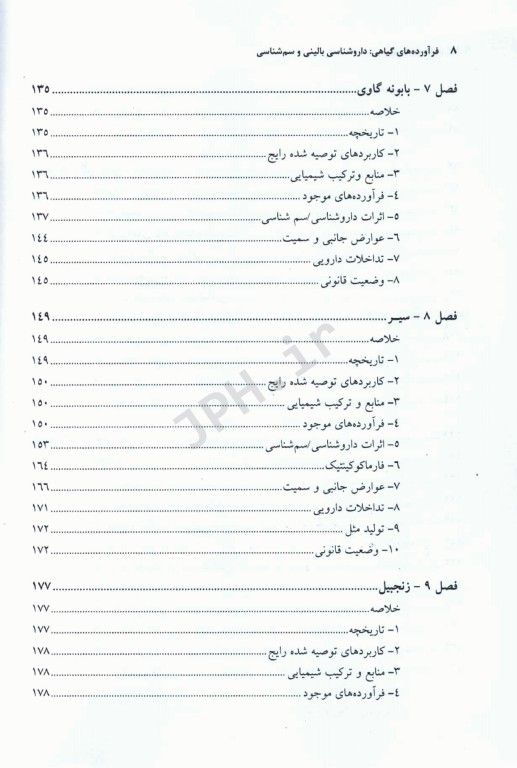 ۸ فرآورده‌های گیاهی: داروشناسی بالینی و سم‌شناسی
فصل ۷ - بابونه گاوی ۱۳۵
خلاصه ۱۳۵
۱- تاریخچه ۱۳۵
۲- کاربردهای توصیه شده رایج ۱۳۶
۳- منابع وترکیب شیمیایی ۱۳۶
۴- فرآورده‌های موجود ۱۳۶
۵- اثرات داروشناسی/سم شناسی ۱۳۷
۶- عوارض جانبی و سمیت ۱۴۴
۷- تداخلات دارویی ۱۴۵
۸- وضعیت قانونی ۱۴۵
فصل ۸ - سیر ۱۴۹
خلاصه ۱۴۹
۱- تاریخچه ۱۴۹
۲- کاربردهای توصیه شده رایج ۱۵۰
۳- منابع و ترکیب شیمیایی ۱۵۰
۴- فرآورده‌های موجود ۱۵۰
۵- اثرات داروشناسی/سم‌شناسی ۱۵۳
۶- فارماکوکینتیک ۱۶۴
۷- عوارض جانبی و سمیت ۱۶۶
۸- تداخلات دارویی ۱۷۱
۹- تولید مثل ۱۷۲
۱۰- وضعیت قانونی ۱۷۲
فصل ۹ - زنجبیل ۱۷۷
خلاصه ۱۷۷
۱- تاریخچه ۱۷۷
۲- کاربردهای توصیه شده رایج ۱۷۸
۳- منابع و ترکیب شیمیایی ۱۷۸
۴- فرآورده‌های موجود ۱۷۸
JPH.ir